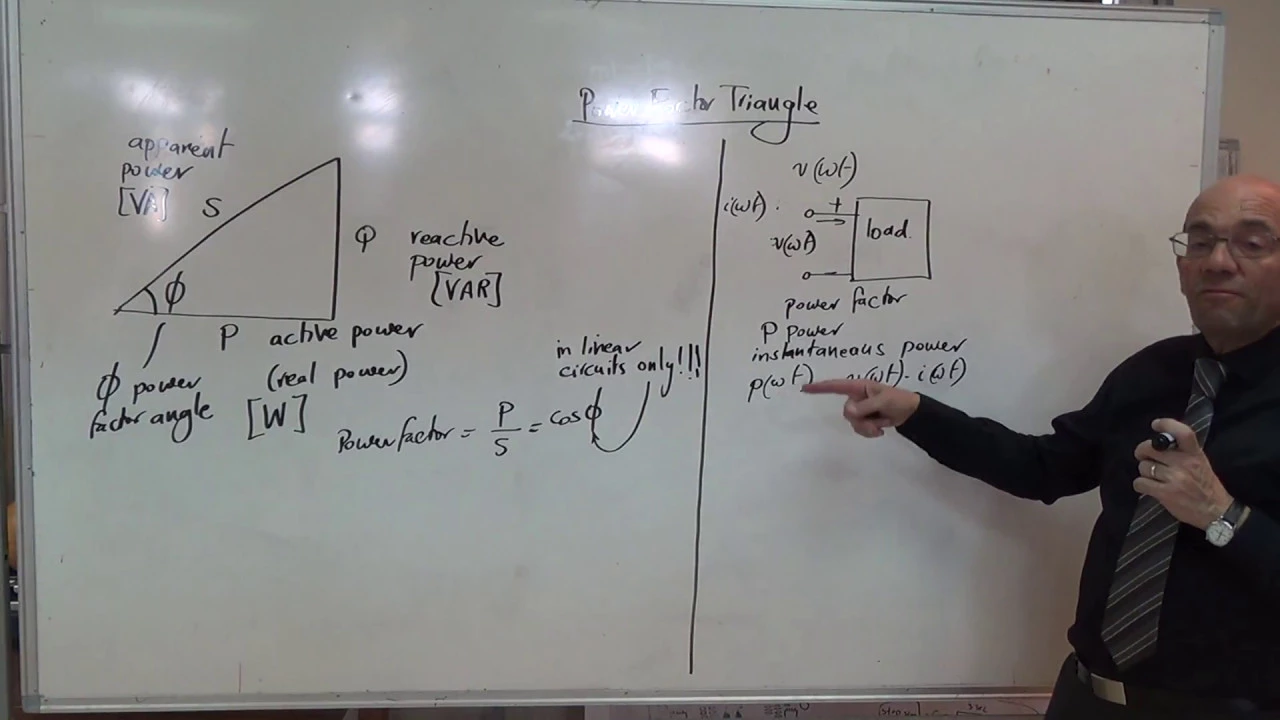 Power Factor Triangle
apparent
power
[VA]
S
Q reactive
power
[VAR]
ϕ
P active power
(real power)
[W]
ϕ power
factor angle
in linear
circuits only!!!
Power factor = P/S = cos ϕ
v(ωt)
i(ωt)
+
load
v(ωt)
-
power factor
P power
instantaneous power
p(ωt) v(ωt) · i(ωt)